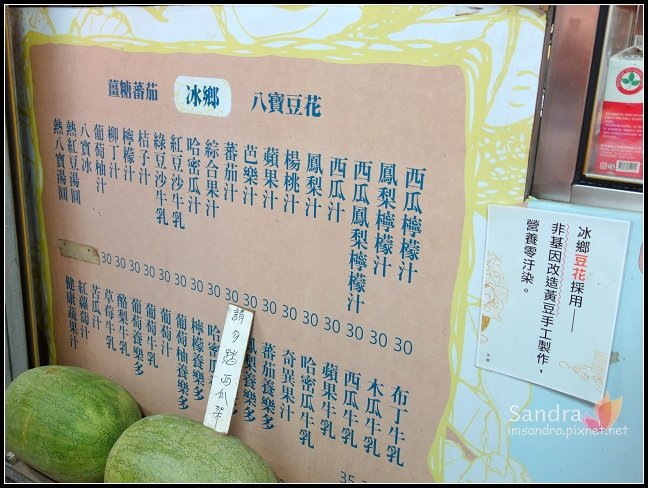 薑糖蕃茄
冰鄉
八寶豆花
西瓜檸檬汁
鳳梨檸檬汁
西瓜鳳梨檸檬汁
西瓜汁
鳳梨汁
楊桃汁
蘋果汁
芭樂汁
蕃茄汁
綜合果汁
哈密瓜汁
紅豆沙牛乳
綠豆沙牛乳
桔子汁
檸檬汁
柳丁汁
葡萄柚汁
八寶冰
熱紅豆湯圓
熱八寶湯圓
30 30 30 30 30 30 30 30 30 30 30 30 30 30 30 30 30
布丁牛乳
木瓜牛乳
西瓜牛乳
蘋果牛乳
哈密瓜牛乳
奇異果汁
蕃茄養樂多
鳳梨養樂多
哈密瓜
檸檬養樂多
葡萄柚養樂多
葡萄汁
葡萄牛乳
葡萄養樂多
酪梨牛乳
草莓牛乳
苦瓜汁
紅蘿蔔汁
健康蔬果汁
請勿踏西瓜架
冰鄉豆花採用——
非基因改造黃豆手工製作，
營養零汙染。
Sandra
imsandra.pixnet.net